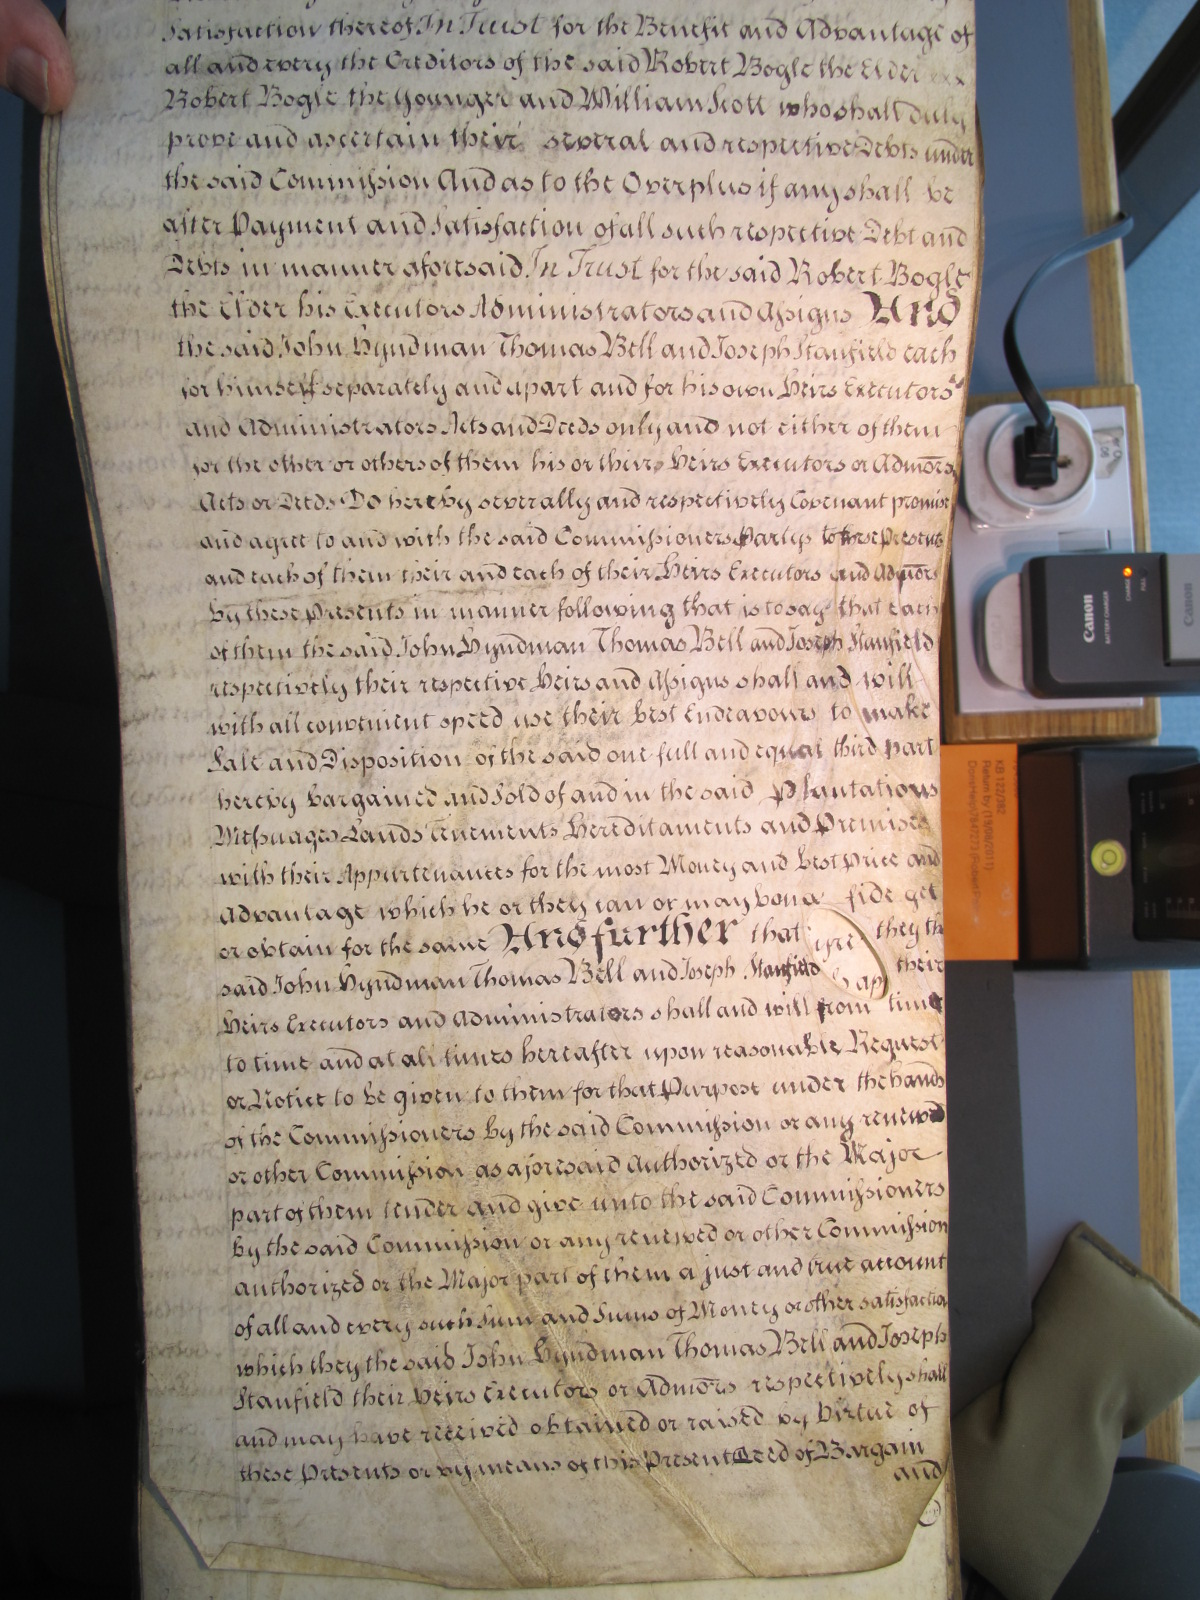 Satisfaction thereof In Trust for the Benefit and Advantage of
all and every the Creditors of the said Robert Bogle the Elder
Robert Bogle the Younger and William Scott who shall duly
prove and ascertain their several and respective Debts under
the said Commission And as to the Overplus if any shall be
after Payment and Satisfaction of all such respective Debt and
Debts in manner aforesaid In Trust for the said Robert Bogle
the Elder his Executors Administrators and Assigns And
the said John Hyndman Thomas Bell and Joseph Stanfield each
for himself separately and apart and for his own Heirs Executors
and Administrators Acts and Deeds only and not either of them
for the other or others of them his or their Heirs Executors or Admors
Acts or Deeds Do hereby severally and respectively Covenant promise
and agree to and with the said Commissioners Partys to these Presents
and each of them their and each of their Heirs Executors and Admors
by these Presents in manner following that is to say that each
of them the said John Hyndman Thomas Bell and Joseph Stanfield
respectively their respective Heirs and Assigns shall and will
with all convenient speed use their best Endeavours to make
Sale and Disposition of the said one full and equal third part
hereby bargained and Sold of and in the said Plantations
Messuages Lands Tenements Hereditaments and Premises
with their Appurtenances for the most Money and best Price and
Advantage which he or they can or may bona fide get
or obtain for the same And further that they th
said John Hyndman Thomas Bell and Joseph Stanfield their
Heirs Executors and Administrators shall and will from time
to time and at all times hereafter upon reasonable Request
or Notice to be given to them for that Purpose under the hands
of the Commissioners by the said Commission or any renewed
or other Commission as aforesaid Authorized or the Major
part of them tender and give unto the said Commissioners
by the said Commission or any renewed or other Commission
authorized or the Major part of them a just and true account
of all and every such Sum and Sums of Money or other satisfaction
which they the said John Hyndman Thomas Bell and Joseph
Stanfield their Heirs Executors or Admors respectively shall
and may have received obtained or raised by Virtue of
these Presents or by means of this Present Deed of Bargain
and
Canon
BATTERY CHARGER
CHARGE
FULL
Canon
KB 122/382
Return by (19/08/2011)